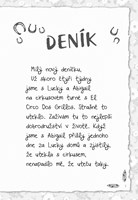 DENÍK
Milý nový deníčku,
Už skoro čtyři týdny
jsme s Lucky a Abigail
na cirkusovém turné s El
Circo Dos Grillos. Strašně to
utekla. Zažívám tu to nejlepší
dobrodružství v životě. Když
jsme s Abigail přišly jednoho
dne za Lucky domů a zjistily,
že utekla s cirkusem,
nenapadlo mě, že uteču taky.